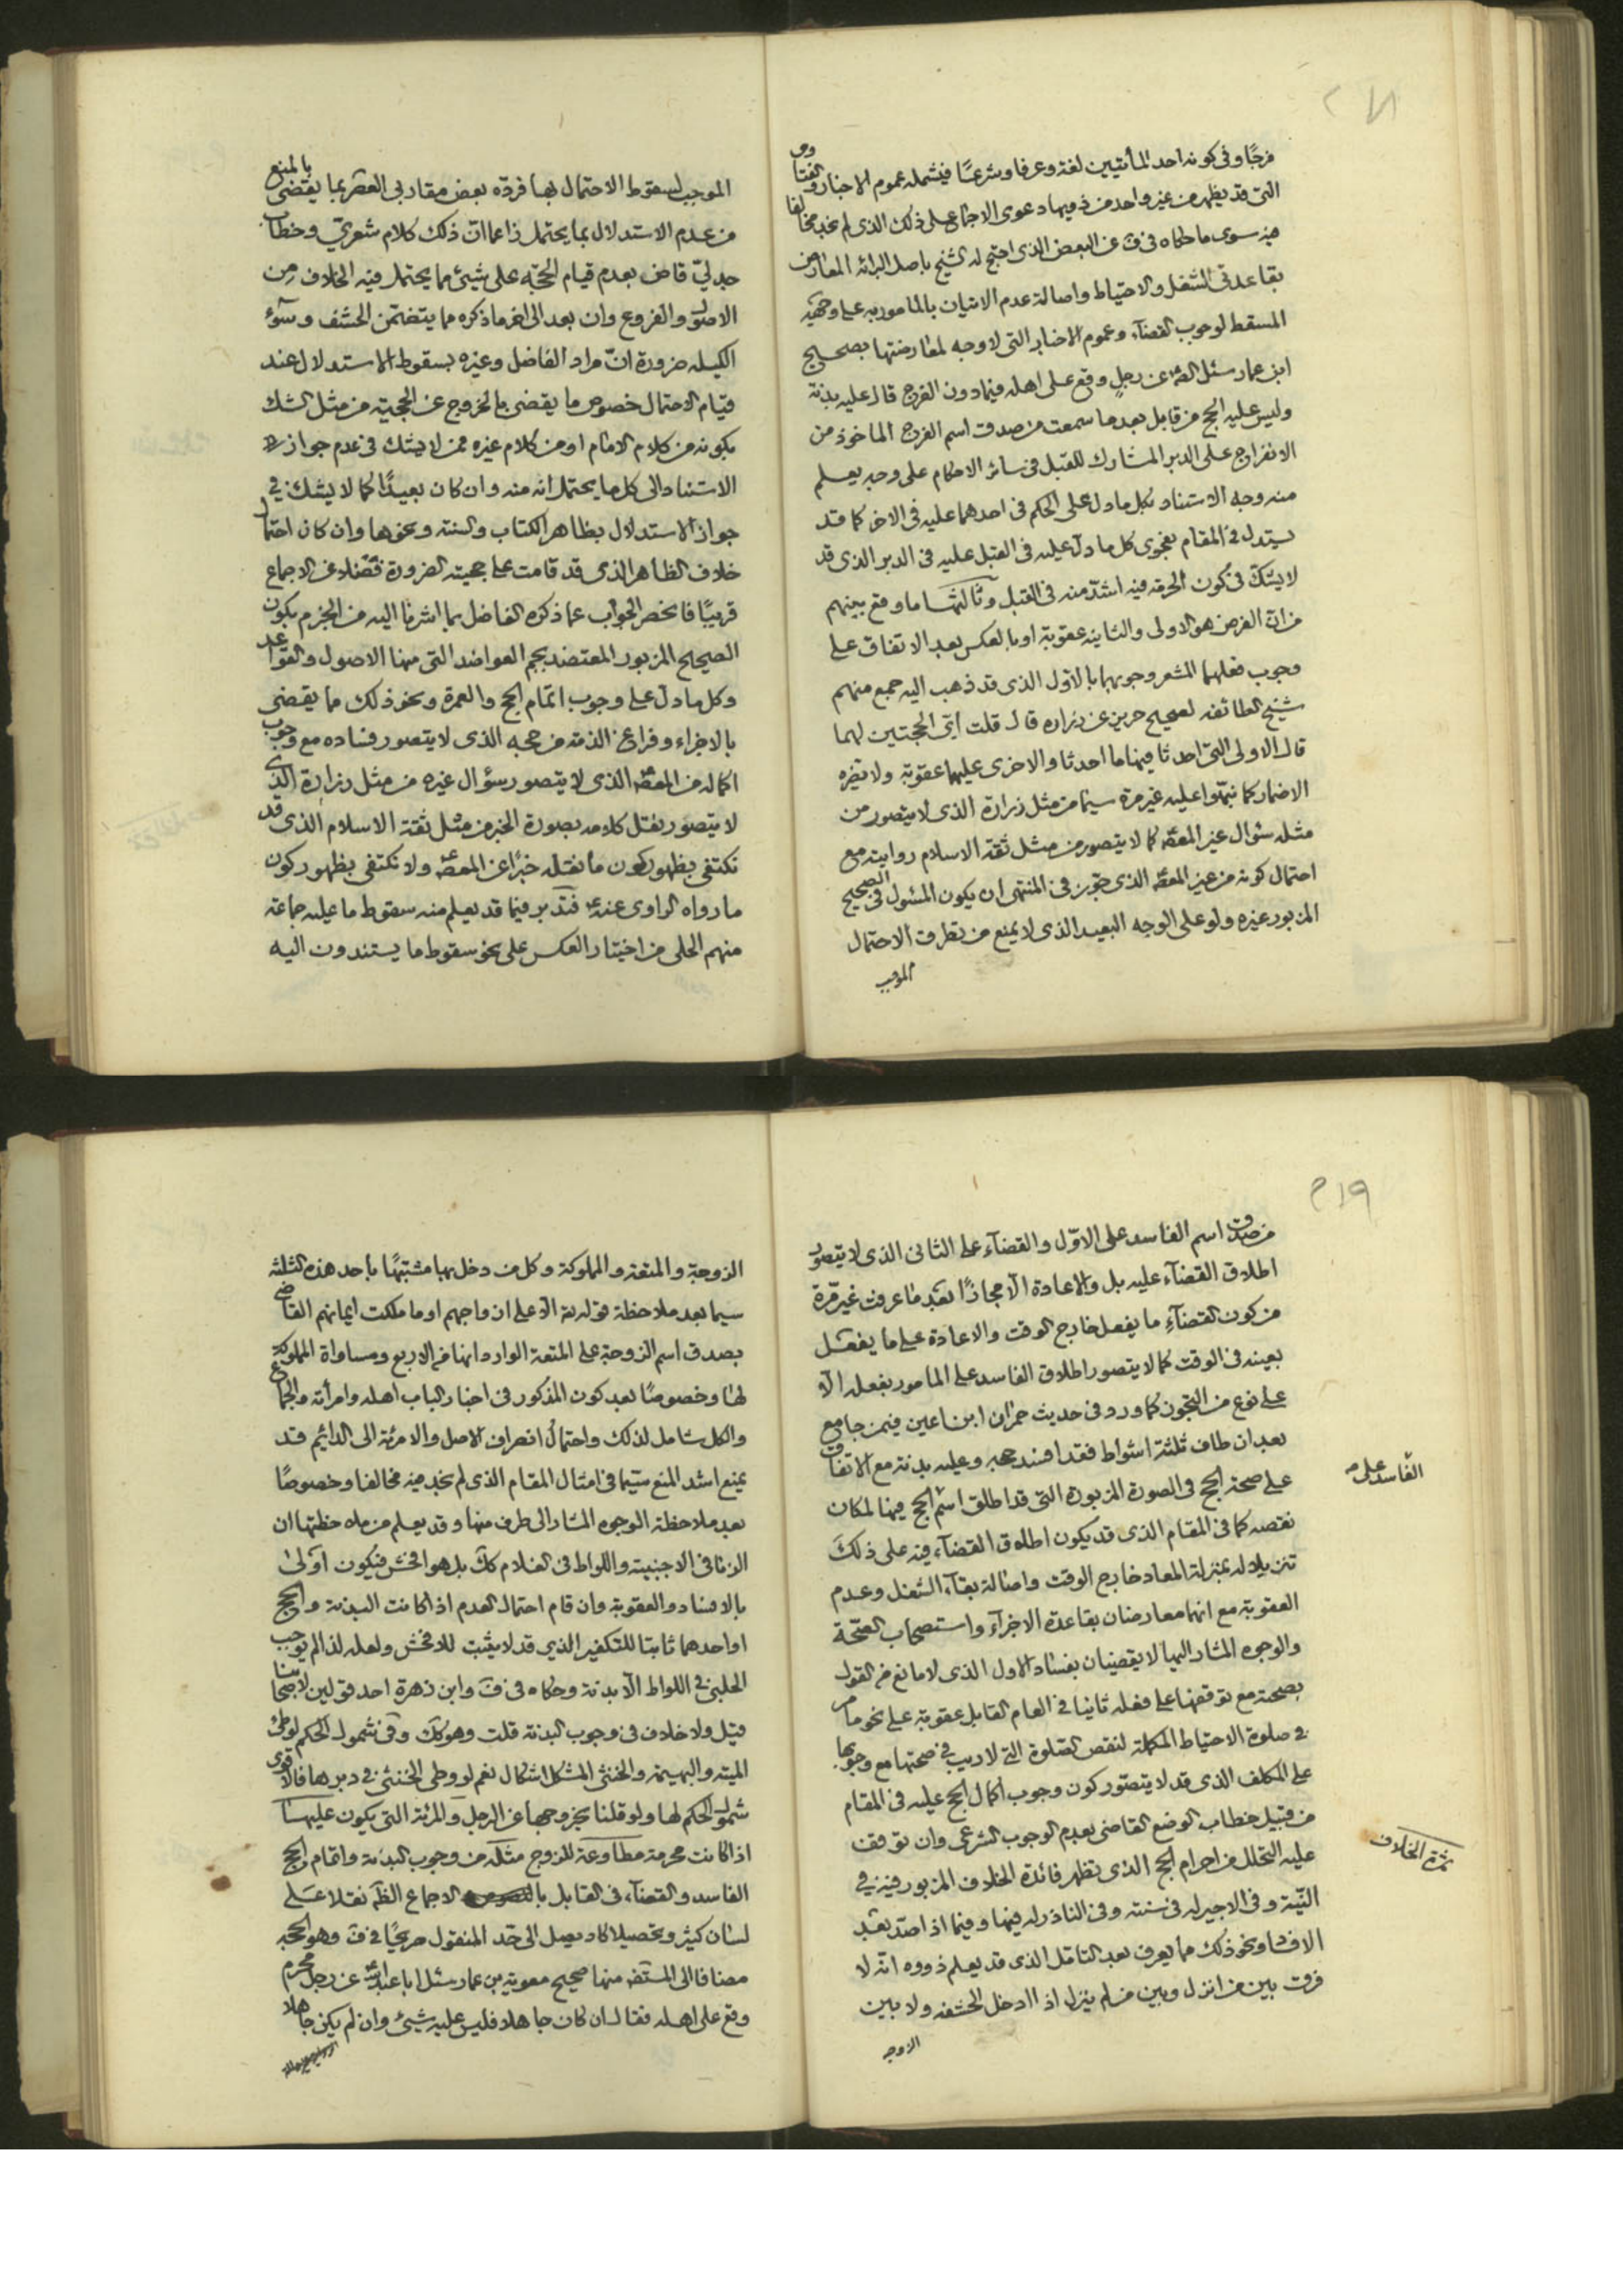 ٢١٨
فرجا وفي كونه احد المأتيين لغة وعرفا وشرعا فيشمله عموم الاخبار والفتاوى
التي قد يظهر من غير واحد من ذويها دعوى الاجماع على ذلك الذي لم نجد مخالفا
فيه سوى ما حكاه في ف عن البعض الذي احتج له الشيخ باصل البرائة المعارض
بقاعدتي الشغل والاحتياط واصالة عدم الاتيان بالمامور به على وجهه
المسقط لوجوب القضاء وعموم الاخبار التي لا وجه لمعارضتها بصحيح
ابن عمار سئل الص عن رجل وقع على اهله فيما دون الفرج قال عليه بدنة
وليس عليه الحج من قابل بعد ما سمعت من صدق اسم الفرج الماخوذ من
الانفراج على الدبر المشارك للقبل في سائر الاحكام على وجه يعلم
منه وجه الاستناد بكل ما دل على الحكم في احدهما عليه في الاخر كما قد
يستدل في المقام بفحوى كل ما دل عليه في القبل عليه في الدبر الذي قد
لا يشك في كون الحرمة فيه اشد منه في القبل وثالثها ما وقع بينهم
من ان الفرض هو الاولى والثانية عقوبة او بالعكس بعد الاتفاق على
وجوب فعلهما المشعر وجوبهما بالاول الذي قد ذهب اليه جمع منهم
شيخ الطائفه لصحيح حريز عن زراره قال قلت اي الحجتين لهما
قال الاولى التي احدثا فيها ما احدثا والاخرى عليهما عقوبة ولا يضره
الاضمار كما نبهوا عليه غير مرة سيما من مثل زرارة الذي لا يتصور من
مثله سئوال غير المعص كما لا يتصور من مثل ثقة الاسلام روايته مع
احتمال كونه من غير المعص الذي جوز في المنتهى ان يكون المسئول في الصحيح
المزبور غيره ولو على الوجه البعيد الذي لا يمنع من تطرق الاحتمال
الموجب
الموجب لسقوط الاحتمال بها فرده بعض مقاربي العصر بما يقتضي بالمنع
من عدم الاستدلال بما يحتمل زاعما ان ذلك كلام شعري وخطاب
جدلي قاض بعدم قيام الحجة على شيئ مما يحتمل فيه الخلاف من
الاصول والفروع وان بعد الى اخر ما ذكره مما يتضمن الحشف وسوء
الكيله ضرورة ان مراد الفاضل وغيره بسقوط الاستدلال عند
قيام الاحتمال خصوص ما يقضي بالخروج عن الحجية من مثل الشك
بكونه من كلام الامام او من كلام غيره ممن لا يشك في عدم جواز
الاستناد الى كل ما يحتمل انه منه وان كان بعيدا كما لا يشك في
جواز الاستدلال بظاهر الكتاب والسنة ونحوها وان كان احتمال
خلاف الظاهر الذي قد قامت على حجيته الضرورة فضلا عن الاجماع
قريبا فانحصر الجواب عما ذكره الفاضل بما اشرنا اليه من الجزم بكون
الصحيح المزبور المعتضد بجم العواضد التي منها الاصول والقواعد
وكل ما دل على وجوب اتمام الحج والعمرة ونحو ذلك مما يقضي
بالاجزاء وفراغ الذمة من حجه الذي لا يتصور فساده مع وجوب
اكماله من المعص الذي لا يتصور سؤال غيره من مثل زرارة الذي
لا يتصور نقل كلامه بصورة الخبر من مثل ثقة الاسلام الذي قد
نكتفي بظهور كون ما نقله خبرا عن المعص ولا نكتفي بظهور كون
ما رواه الراوي عنه ع فتدبر فيما قد يعلم منه سقوط ما عليه جماعة
منهم الحلي من اختيار العكس على نحو سقوط ما يستندون اليه
٢١٩
من صدق اسم الفاسد على الاول والقضاء على الثاني الذي لا يتصور
اطلاق القضاء عليه بل والاعادة الا مجازا بعد ما عرفت غير مرة
من كون القضاء ما يفعل خارج الوقت والاعادة على ما يفعل
بعينه في الوقت كما لا يتصور اطلاق الفاسد على المامور بفعله الا
على نوع من التجوز كما ورد في حديث حمران ابن اعين فيمن جامع
بعد ان طاف ثلثة اشواط فقد افسد حجه وعليه بدنة مع الاتفاق
على صحة الحج في الصورة المزبورة التي قد اطلق اسم الحج فيها لمكان
الفاسد على م
نقصه كما في المقام الذي قد يكون اطلاق القضاء فيه على ذلك
تنزيلا له بمنزلة المعاد خارج الوقت واصالة بقاء الشغل وعدم
العقوبة مع انهما معارضان بقاعدة الاجزاء واستصحاب الصحة
والوجوه المشار اليها لا يقضيان بفساد الاول الذي لا مانع من القول
بصحته مع توقفها على فعله ثانيا في العام القابل عقوبة على نحو ما مر
في صلوة الاحتياط المكملة لنقص الصلوة التي لا ريب في صحتها مع وجوبها
على المكلف الذي قد لا يتصور كون وجوب اكمال الحج عليه في المقام
من قبيل خطاب الوضع القاضي بعدم الوجوب الشرعي وان توقف
عليه التحلل من احرام الحج الذي تظهر فائدة الخلاف المزبور فيه في
ثمرة الخلاف
النية وفي الاجير له في سنته وفي الناذر له فيها وفيما اذا صد بعد
الافساد ونحو ذلك مما يعرف بعد التامل الذي قد يعلم ذووه انه لا
فرق بين من انزل وبين من لم ينزل اذا ادخل الحشفه ولا بين
الزوجه
الزوجة والمتعة والمملوكة وكل من دخل بها مشتبها باحد هذه الثلثة
سيما بعد ملاحظة قوله تع الا على ازواجهم او ما ملكت ايمانهم القاضي
بصدق اسم الزوجة على المتعة الوارد انها من الاربع ومساواة المملوكة
لها وخصوصا بعد كون المذكور في اخبار الباب اهله وامرأته والجماع
والكل شامل لذلك واحتمال انصراف الاهل والامرئة الى الدائم قد
يمنع اشد المنع سيما في امثال المقام الذي لم نجد فيه مخالفا وخصوصا
بعد ملاحظة الوجوه المشار الى طرف منها وقد يعلم من ملاحظتها ان
الزنا في الاجنبية واللواط في الغلام كك بل هو افحش فيكون اولى
بالافساد والعقوبة وان قام احتمال العدم اذا كانت البدنة والحج
او احدهما ثابتا للتكفير الذي قد لا يثبت للافحش ولعله لذا لم يوجب
الحلبي في اللواط الا بدنة وحكاه في ف وابن زهرة احد قولين لاصحابنا
قيل ولا خلاف في وجوب البدنة قلت وهو كك وفي شمول الحكم لوطئ
الميتة والبهيمة والخنثى المشكل اشكال نعم لو وطي الخنثى في دبرها فالاقوى
شمول الحكم لها ولو قلنا بخروجها عن الرجل والمرئة التي يكون عليها
اذا كانت محرمة مطاوعة للزوج مثله من وجوب البدنة واتمام الحج
الفاسد والقضاء في القابل الاجماع الظ نقلا على
لسان كثير وتحصيلا كاد يصل الى حد المنقول صريحا في ف وهو الحجه
مضافا الى المستفه منها صحيح معوية بن عمار سئل ابا عبد الله عن رجل محرم
وقع على اهله فقال ان كان جاهلا فليس عليه شيئ وان لم يكن جاهلا